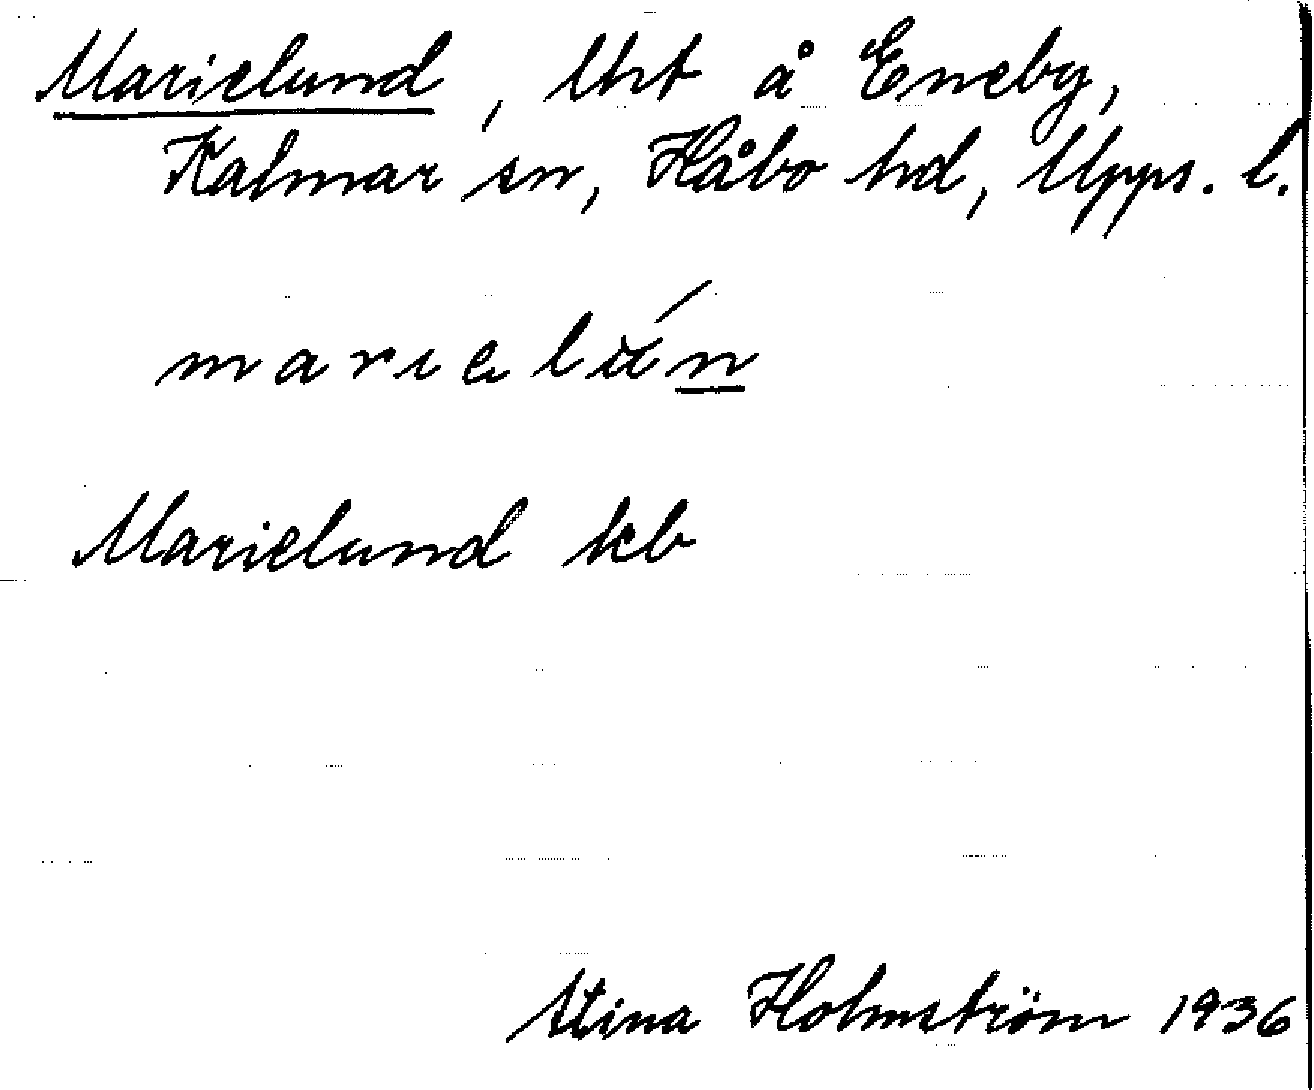 Marielund, lht å Eneby,
Kalmar sn, Håbo hd, Upps. l.
marielún
Marielund kb
Stina Holmström 1936